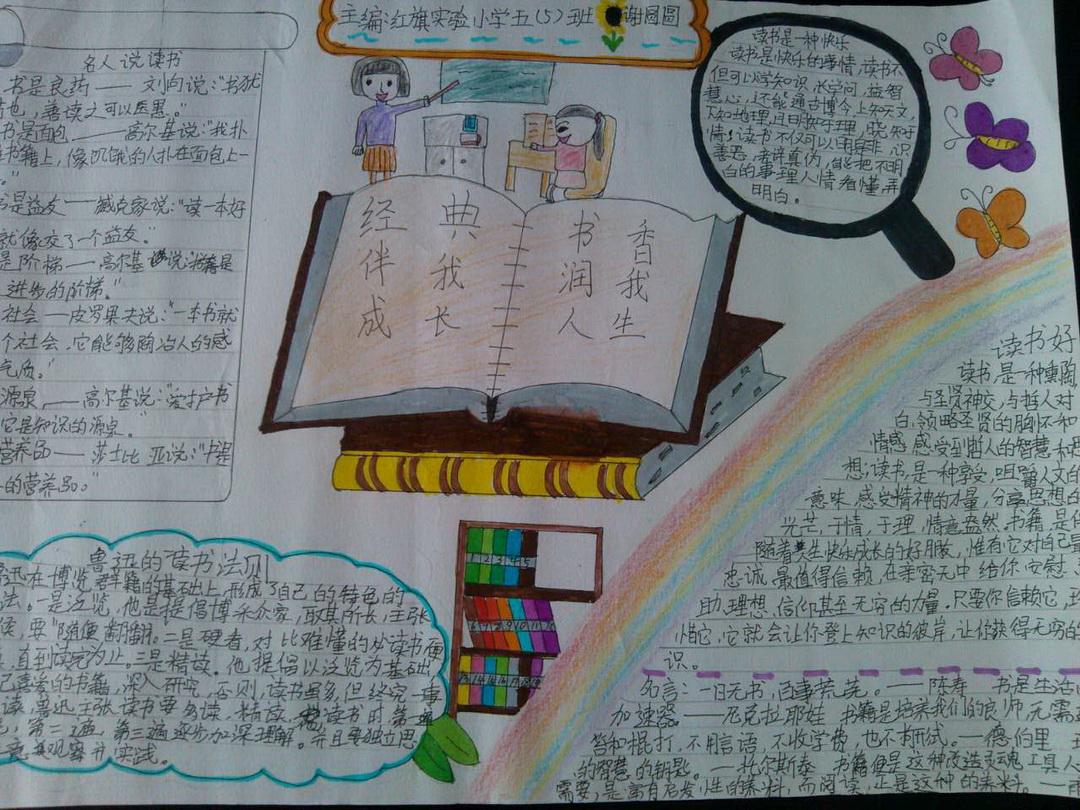 主编:红旗实验小学五(5)班 谢圆圆
名人说读书
书是良药——刘向说:“书犹
也,善读之可以医愚。”
书是面包——高尔基说:“我扑
书籍上,像饥饿的人扑在面包上一
。”
是益友——臧克家说:“读一本好
就像交了一个益友。”
是阶梯——高尔基说:书籍是
进步的阶梯。”
社会——皮罗果夫说:“一本书就
个社会,它能够陶冶人的感
气质。”
源泉,——高尔基说:“爱护书
它是知识的源泉。”
营养品——莎士比亚说:“书是
的营养品。”
读书是一种快乐
读书是快乐的事情,读书不
但可以学知识,长学问,益智
慧心,还能通古博今,上知天文
下知地理,且日快于理,晓知于
情!读书不仅可以明辩是非,识
善恶,考详真伪,能把不明
白的事理人情看懂,弄
明白。
经典 书香
伴我 润我
成长 人生
鲁迅的读书法则
鲁迅在博览群籍的基础上,形成了自己的特色的
法。一是泛览,他是提倡博采众家,取其所长,主张
读,要“随便翻翻。二是硬看,对比难懂的必读书硬
,直到读完为止。三是精读。他提倡以泛览为基础,
己喜爱的书籍,深入研究,否则,读书虽多,但终究一事
读。鲁迅主张读书要多读,精读,读书时第一遍
,第二遍,第三遍逐步加深理解。并且要独立思
更其观察并实践。
读书好
读书,是一种熏陶
与圣贤神交,与哲人对
白,领略圣贤的胸怀和
情感,感受到哲人的智慧和思
想;读书,是一种享受,咀嚼人文的
意味,感受精神的力量,分享思想的
光芒,于情,于理,情意盎然。书籍,是伴
随着人生快乐成长的好朋友,惟有它对自己最
忠诚,最值得信赖,在亲密无中给你安慰
助,理想,信仰甚至无穷的力量。只要你信赖它,珍
惜它,它就会让你登上知识的彼岸,让你获得无穷的
识。
名言:一日无书,百事荒芜。——陈寿 书是生活
加速器。——尼克拉耶娃 书籍是培养我们的良师,无需
笞和棍打,不用言语,不收学费,也不拘形式。——德伯里
的智慧的钥匙。——托尔斯泰 书籍便是这种改造灵魂工具人
需要,是富有启发性的养料,而阅读,正是这种的养料。——雨